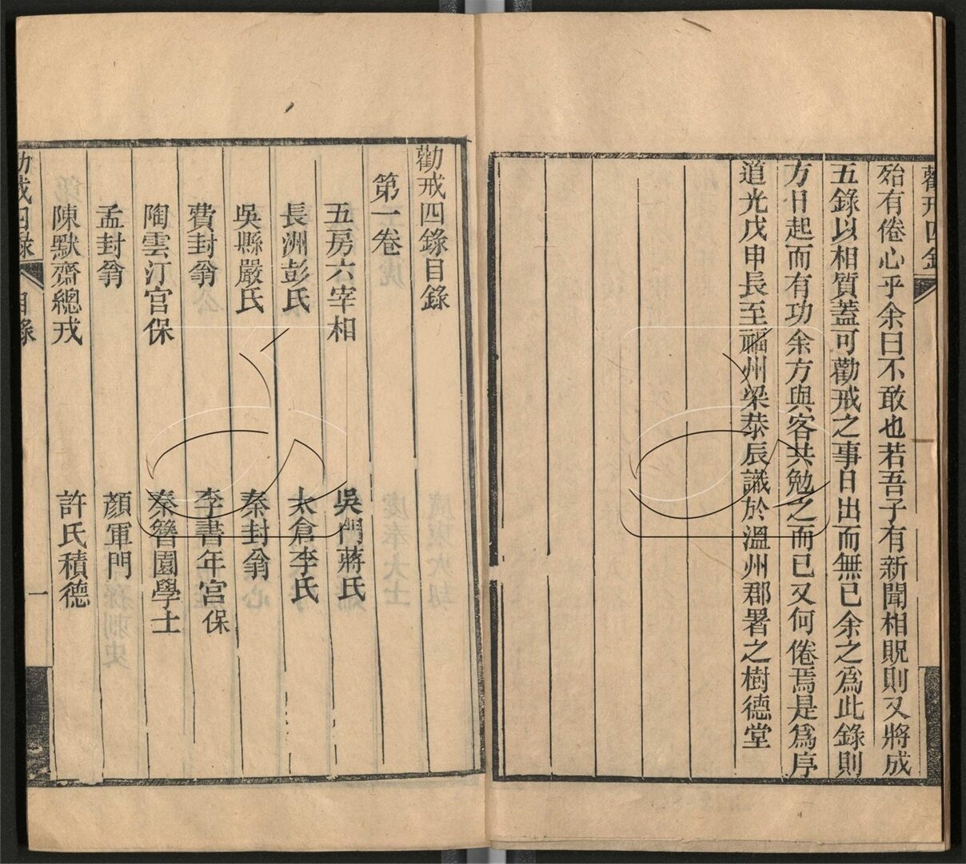 殆有倦心乎余曰不敢也若吾子有新聞相貺則又將成
五錄以相質蓋可勸戒之事日出而無已余之爲此錄則
方日起而有功余方與客共勉之而已又何倦焉是爲序
道光戊申長至福州梁恭辰識於溫州郡署之樹德堂
勸戒四錄目錄
第一卷
五房六宰相　吳門蔣氏
長洲彭氏　太倉李氏
吳縣嚴氏　秦封翁
費封翁　李書年宮保
陶雲汀宮保　秦簪園學士
孟封翁　顏軍門
陳默齋總戎　許氏積德
勸戒四錄　目錄　一